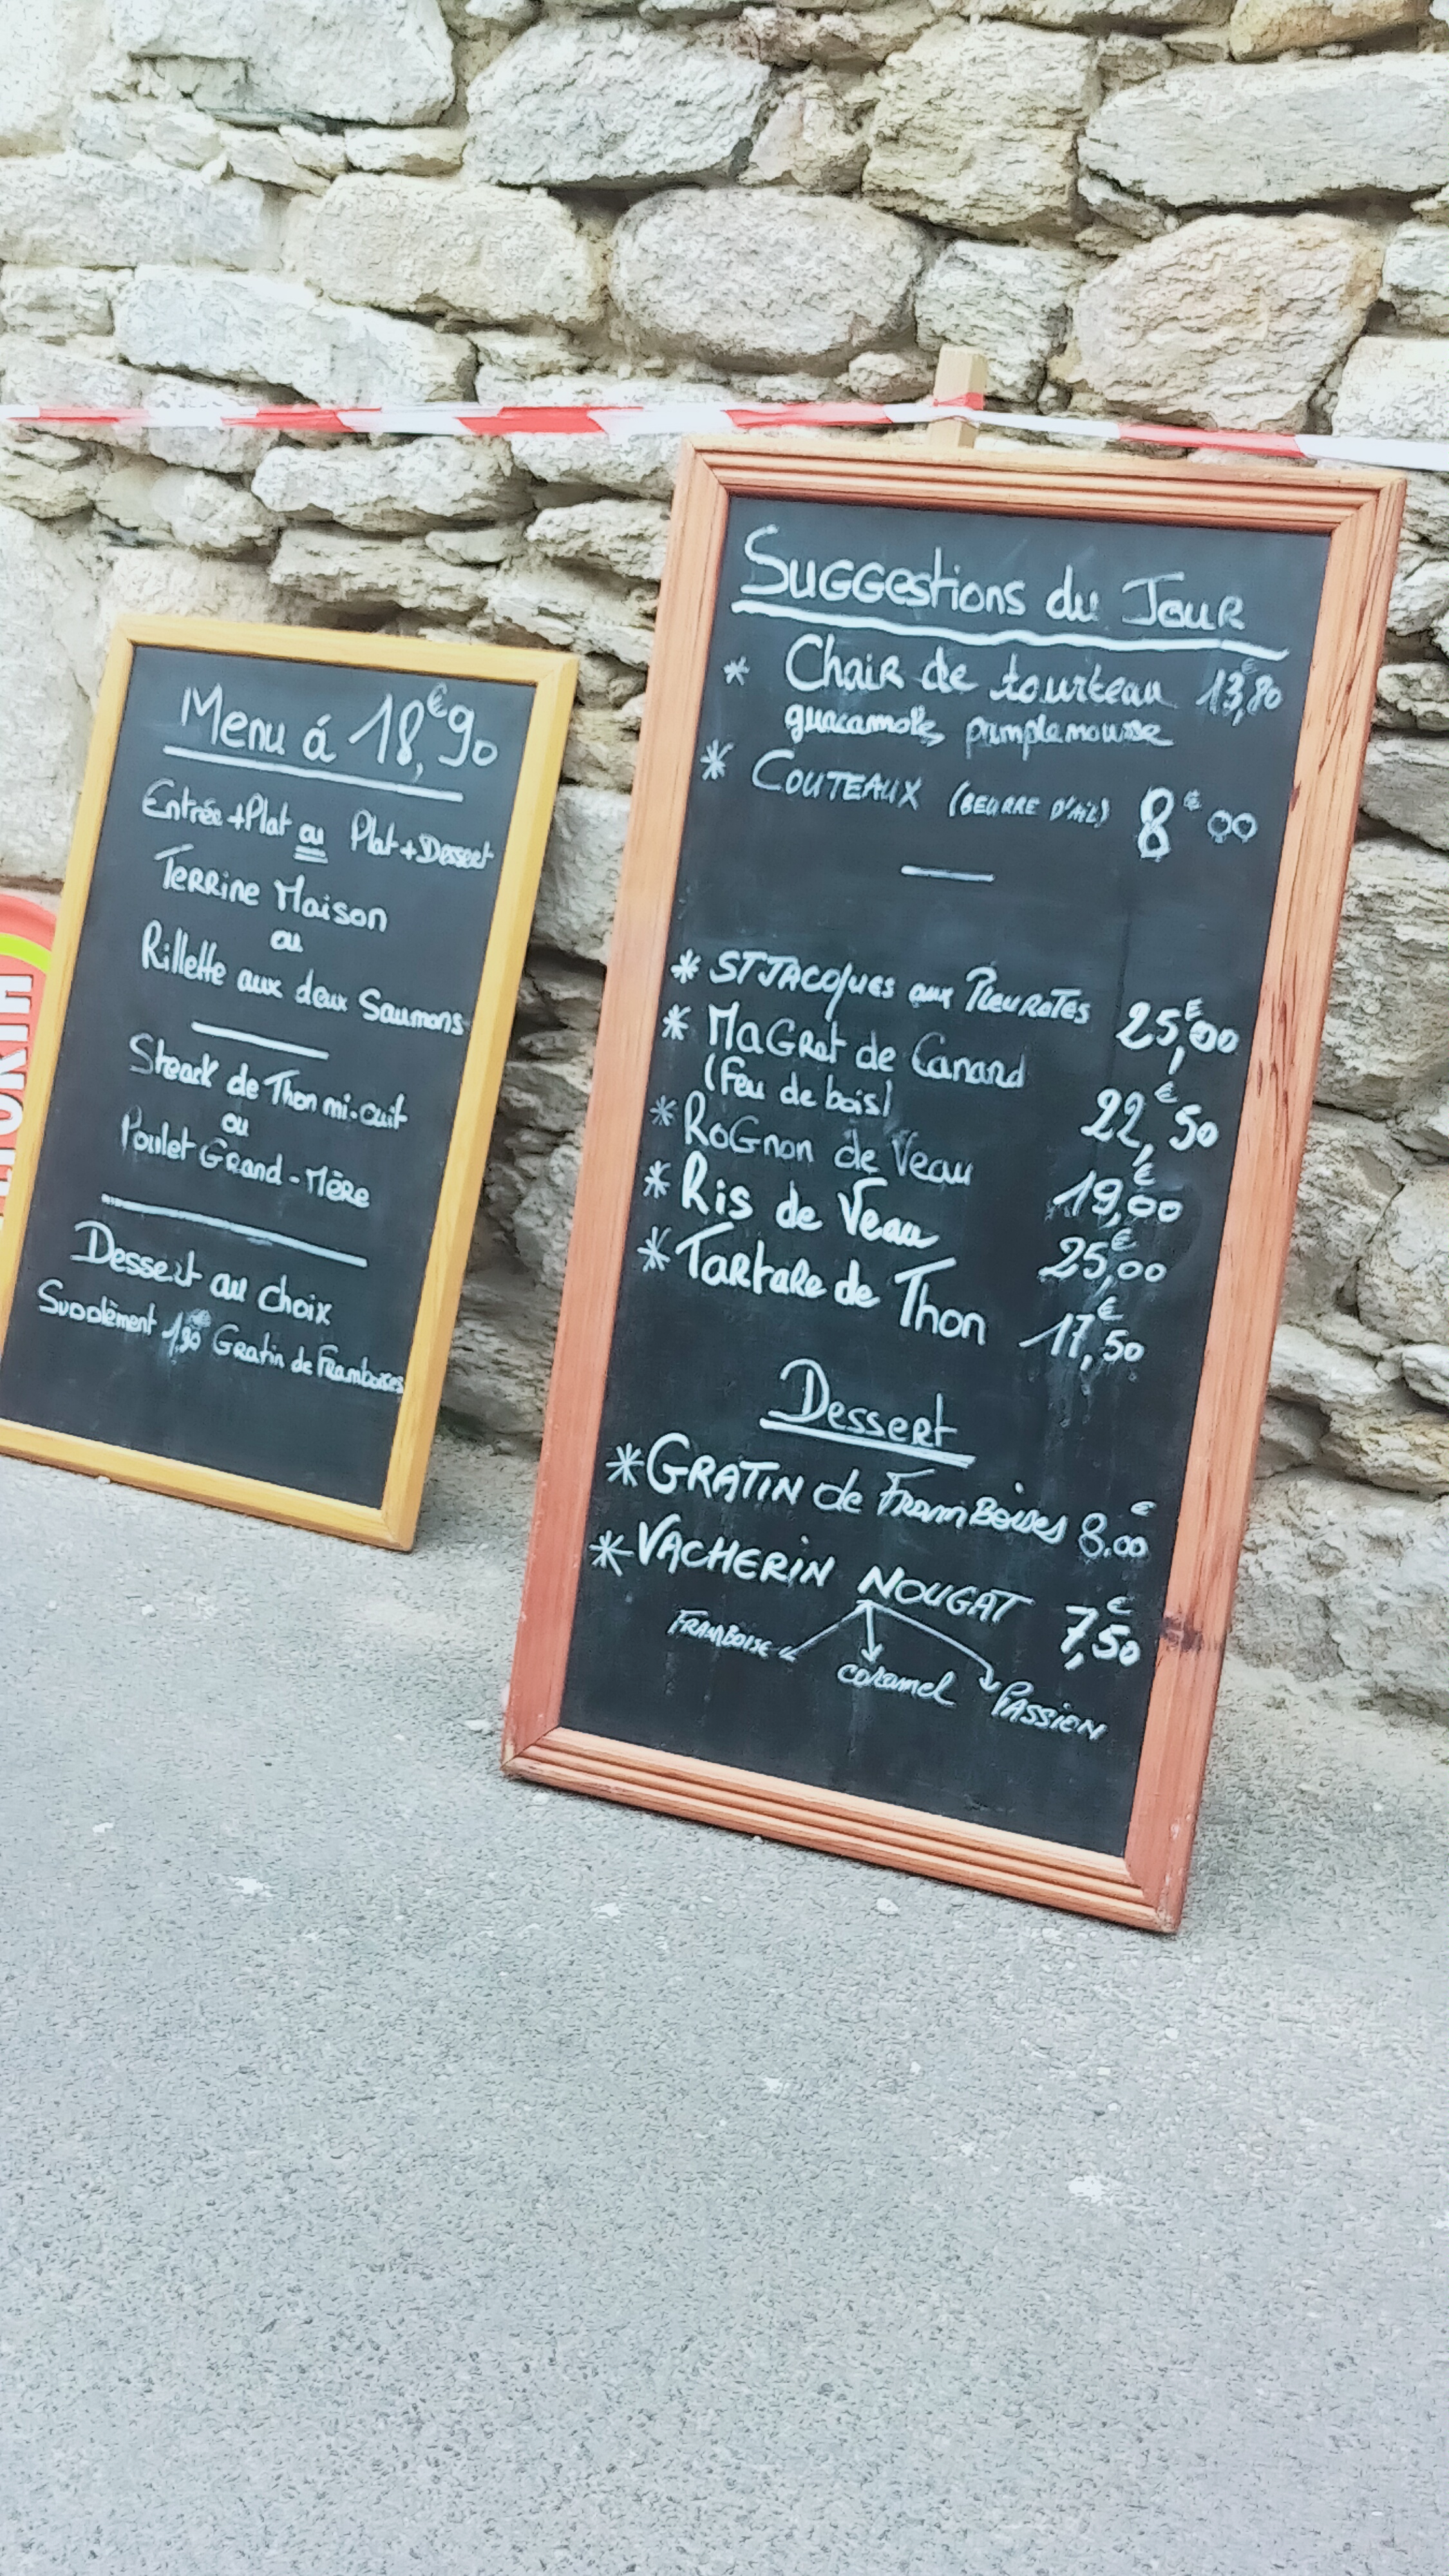 Menu á 18,€90
Entrée+Plat ou Plat+Dessert
Terrine Maison
ou
Rillette aux deux Saumons
Steack de Thon mi-cuit
ou
Poulet Grand-Mère
Dessert au choix
Supplèment 1,90€ Gratin de Framboises
Suggestions du Jour
* Chair de tourteau 13,€80
guacamole, pamplemousse
* COUTEAUX (BEURRE D'AIL) 8€00
* ST JACQUES aux PLEUROTES 25,€00
* MaGRet de Canard
(Feu de bois) 22,€50
* RoGnon de Veau 19,€00
* Ris de Veau 25,€00
* Tartare de Thon 17,€50
Dessert
* GRATIN de FramBoises 8.€00
* VACHERIN NOUGAT 7,€50
FRAMBOISE caramel PASSION